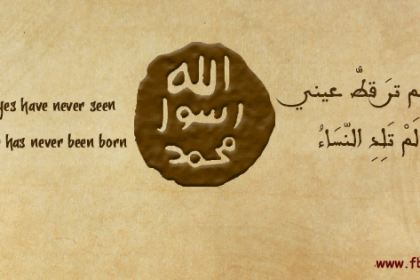 yes have never seen
has never been born
الله
رسول
محمد
م ترَ قطُّ عيني
لَمْ تَلِدِ النِّسَاءُ
www.f